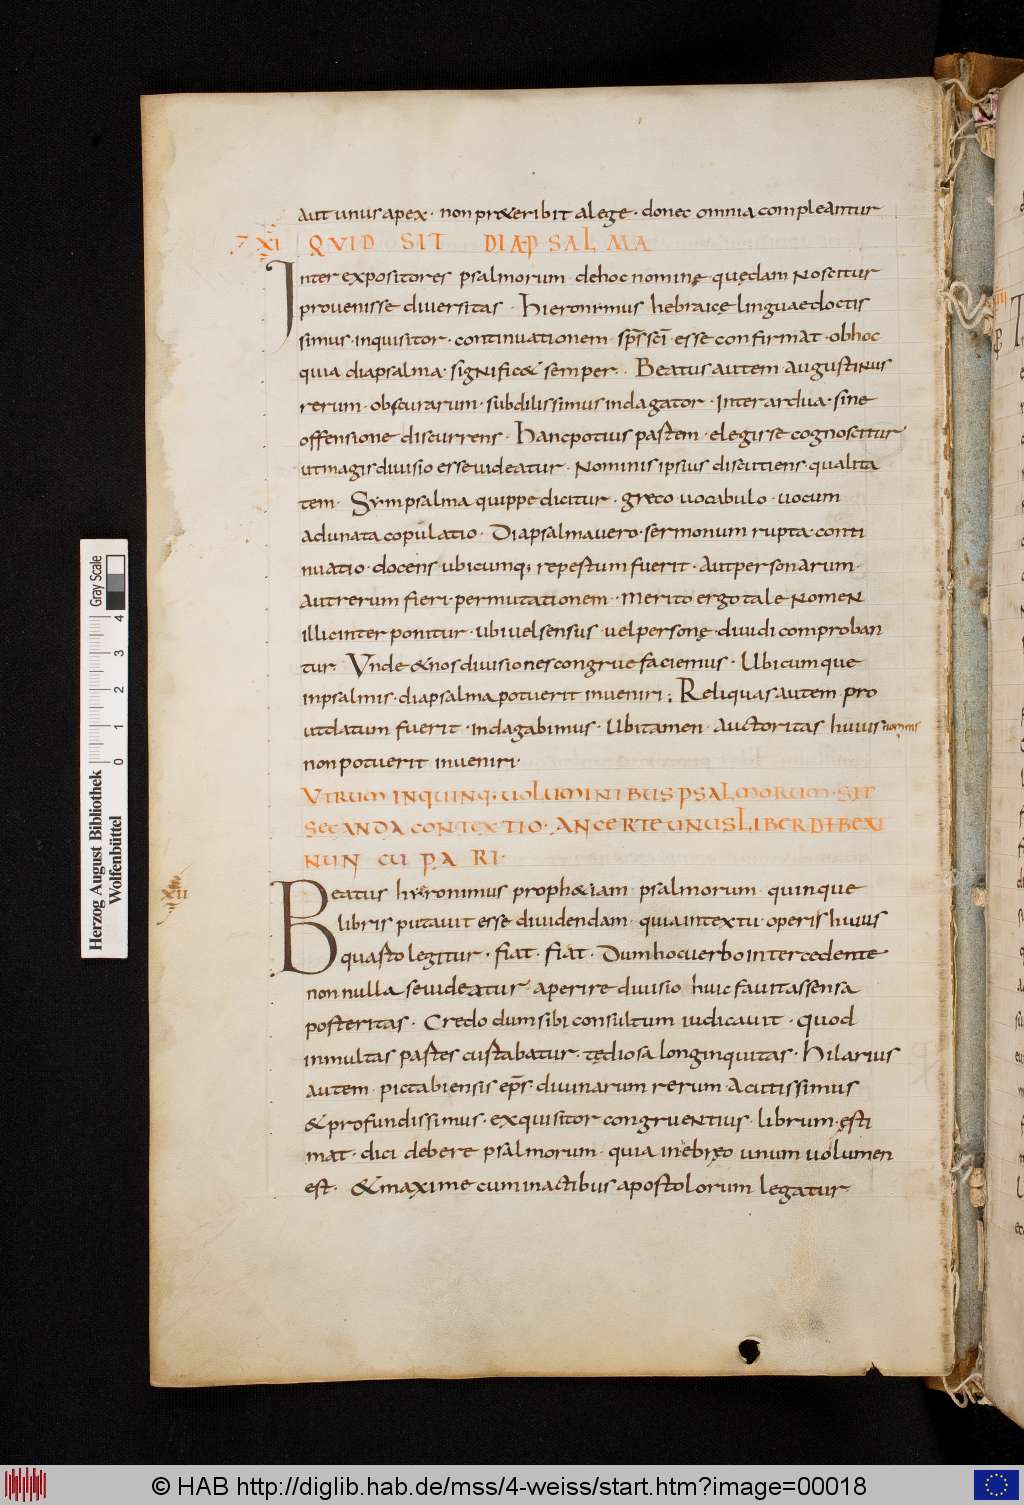 aut unus apex · non pr&eribit a lege · donec omnia compleantur
XI QUID SIT DIAPSALMA
Inter expositores psalmorum de hoc nominę quędam noscitur
provenisse diversitas · Hieronimus hebraicę linguae doctis
simus inquisitor · continuationem sp̄s sc̄i esse confirmat · ob hoc
quia diapsalma · signific& semper · Beatus autem augustinus
rerum · obscurarum · subtilissimus indagator · inter ardua · sine
offensione discurrens · Hanc potius partem · elegisse cognoscitur
ut magis divisio esse videatur · Nominis ipsius discutiens qualita
tem · Sympsalma quippe dicitur · greco vocabulo · vocum
adunata copulatio · Diapsalma vero · sermonum rupta · conti
nuatio · docens ubicumq; repertum fuerit · aut personarum ·
aut rerum fieri · permutationem · merito ergo tale nomen
illic interponitur · ubi vel sensus · vel personę · dividi comproban
tur Unde & nos divisiones congrue faciemus · Ubicumque
in psalmis · diapsalma potuerit inveniri ; Reliquas autem · pro
ut datum fuerit · indagabimus · Ubi tamen · auctoritas huius nominis
non potuerit inveniri ·
UTRUM IN QUINQ; VOLUMINIBUS PSALMORUM · SIT
SECANDA CONTEXTIO · AN CERTE UNUS LIBER DEBEAT
NUNCUPARI ·
XII
Beatus hieronimus proph&iam psalmorum quinque
libris putavit esse dividendam quia in textu · operis huius
quarto legitur · fiat · fiat · Dum hoc verbo intercedente
non nulla se videatur aperire divisio huic favit assensa
posteritas · Credo dum sibi consultum iudicavit · quod
in multas partes custabatur · tędiosa longinquitas · Hilarius
autem pictabiensis ep̄s divinarum rerum acutissimus
& profundissimus · exquisitor congruentius · librum · ęsti
mat · dici debere psalmorum · quia in ebręo unum volumen
est · & maxime cum in actibus apostolorum legatur
Herzog August Bibliothek
Wolfenbüttel
0 1 2 3 4
Gray Scale
© HAB http://diglib.hab.de/mss/4-weiss/start.htm?image=00018